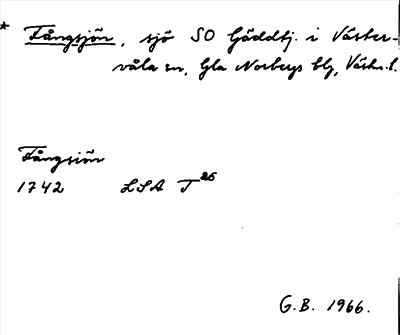 * Tångsjön, sjö SO Gäddtj. i Väster-
våla sn, Gla Norbergs blg, Västm. l.
Tångsiön
1742 LSA T 26
G.B. 1966.